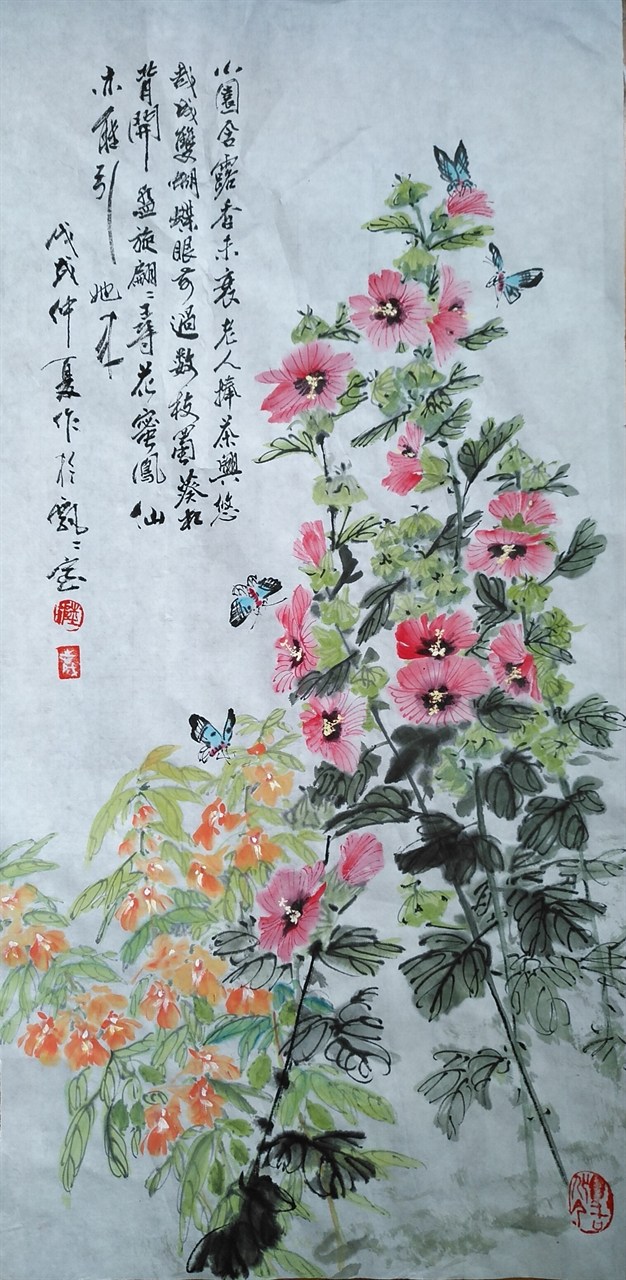 小園含露香未衰老人捧茶興悠
哉成雙蝴蝶眼前過數枝蜀葵相
背開盤旋翩〻尋花蜜鳳仙
亦能引她来
戊戌仲夏作於